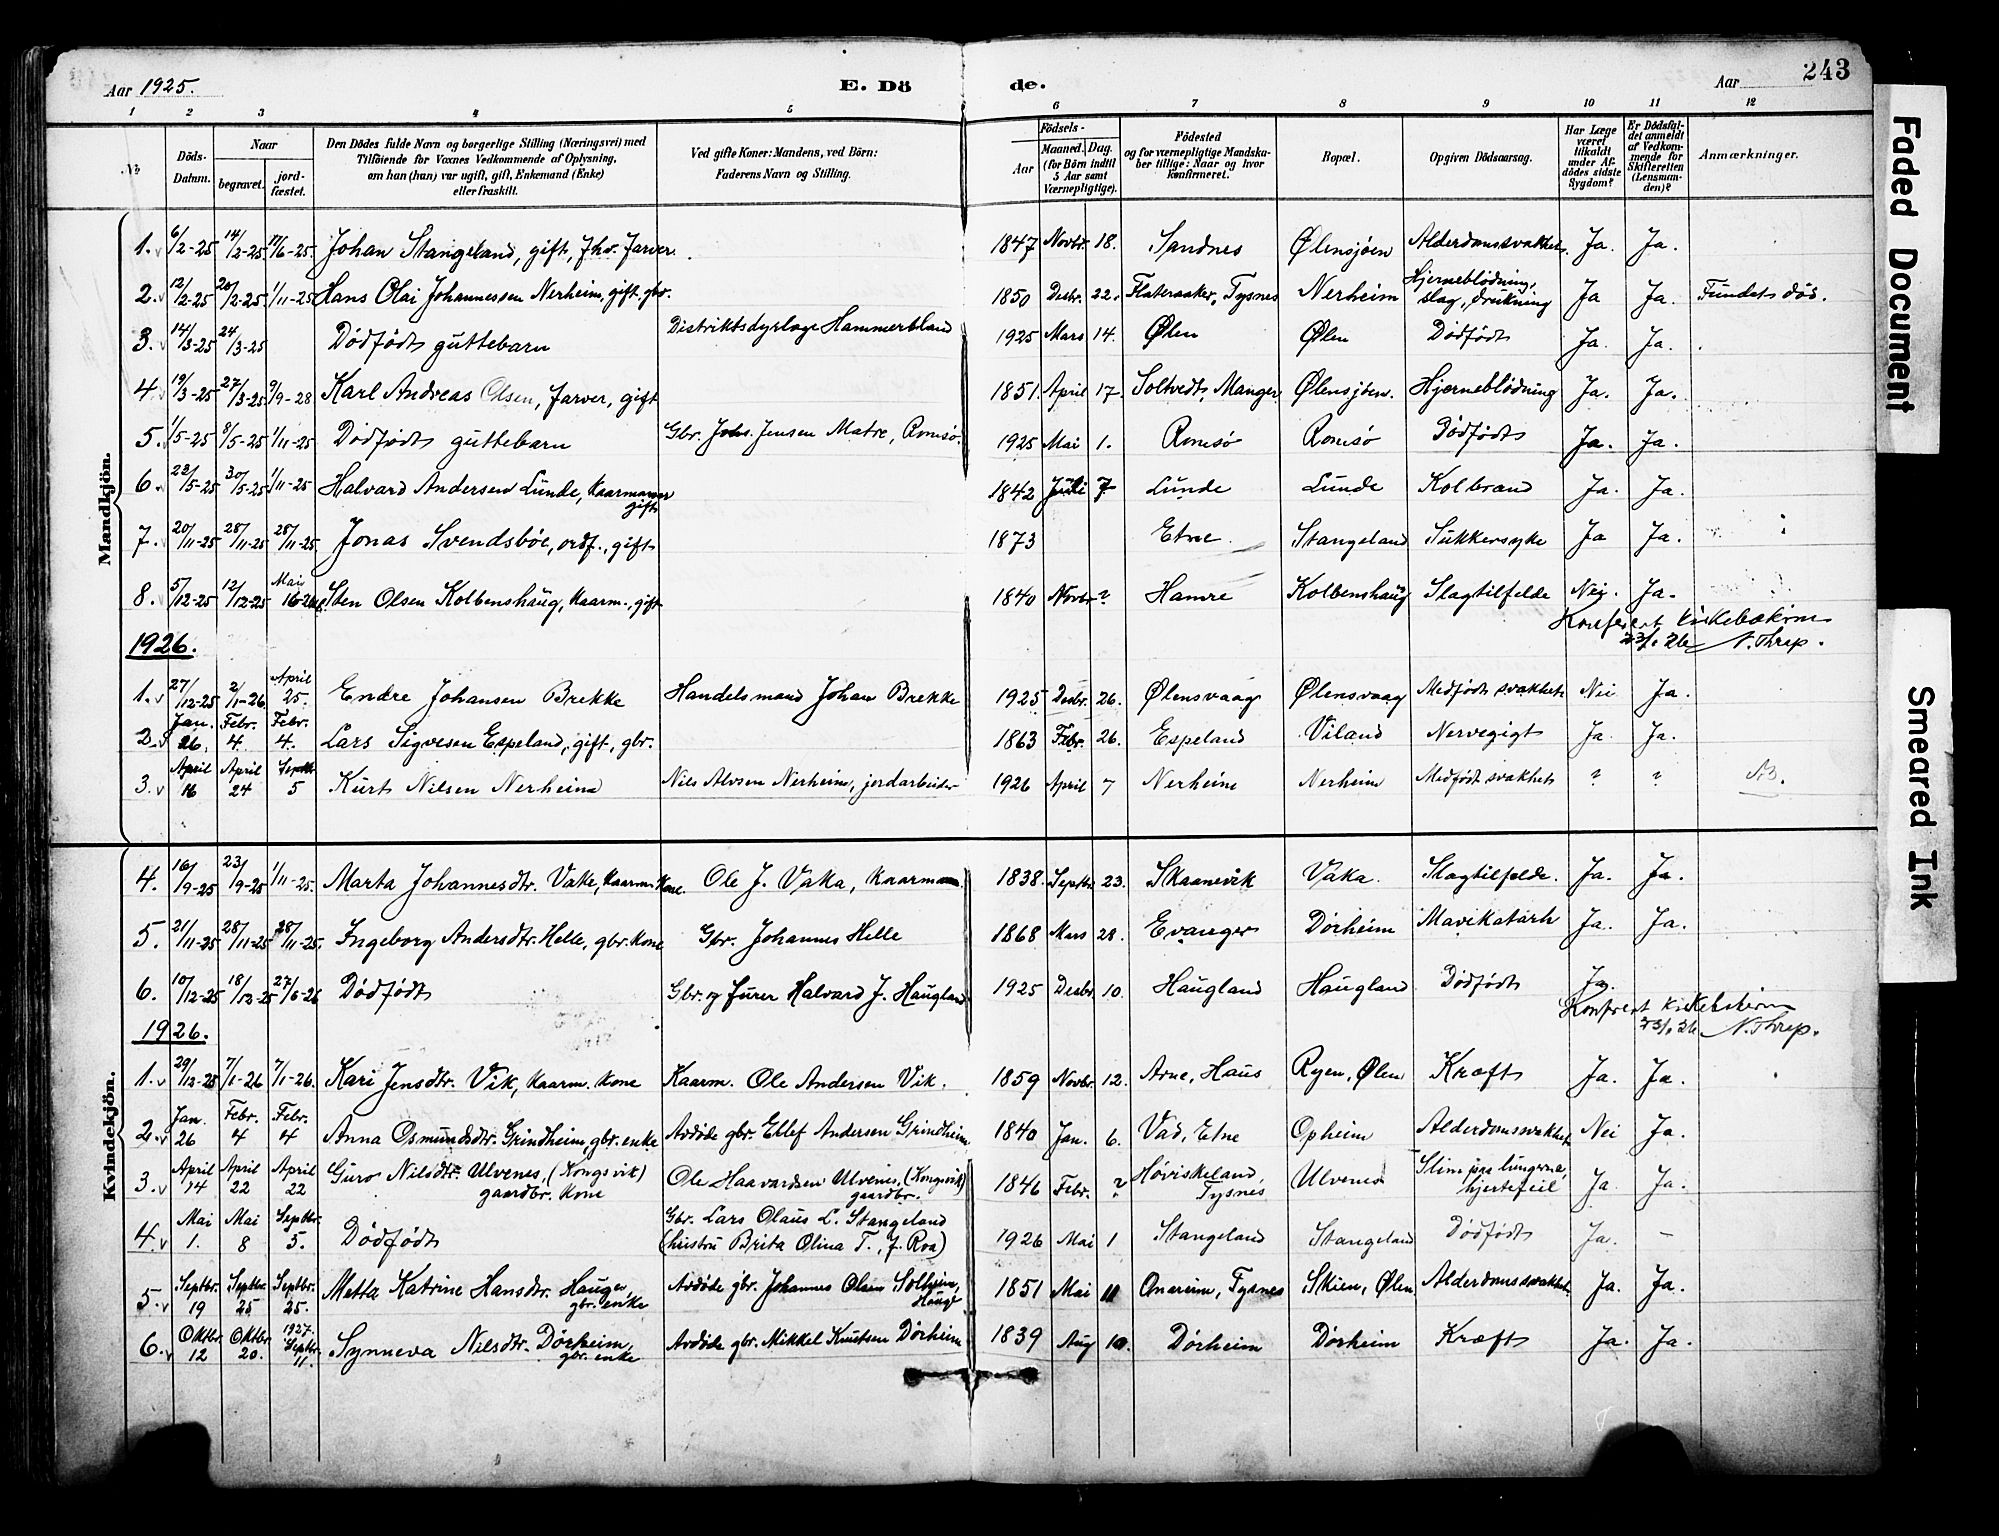 243
Aar 1925. E. Dö de. Aar
1 2 3 4 5 6 7 8 9 10 11 12
№ Döds-Datum. Naar begravet. jord-fæstet. Den Dödes fulde Navn og borgerlige Stilling (Næringsvei) med Tilföiende for Voxnes Vedkommende af Oplysning, om han (hun) var ugift, gift, Enkemand (Enke) eller fraskilt. Ved gifte Koner: Mandens, ved Börn: Faderens Navn og Stilling. Födsels- Aar Maaned. Dag. (for Börn indtil 5 Aar samt Værnepligtige). Födested og for værnepligtige Mandska-ber tillige: Naar og hvor konfirmeret. Bopæl. Opgiven Dödsaarsag. Har Læge været tilkaldt under Af-dödes sidste Sygdom? Er Dödsfal-det anmeldt af Vedkom-mende for Skifteretten (Lensman-den)? Anmærkninger.
Mandkjön.
1. 6/2-25 14/2-25 11/6-25 Johan Stangeland, gift, fhv. farver 1847 Novbr. 18. Sandnes Ølensjøen Alderdomssvakhet. Ja. Ja.
2. 12/2-25 20/2-25 1/11-25 Hans Olai Johannessen Nerheim, gift, gbr. 1850 Desbr. 22. Flateraaker, Tysnes Nerheim Hjerneblödning, slag, drukning Ja Ja. Fundet död.
3. 14/3-25 24/3-25 Dödfödt guttebarn Distriktsdyrlæge Hammerbland 1925 Mars 14. Ølen Ølen Dödfödt Ja. Ja.
4. 19/3-25 27/3-25 9/9-28 Karl Andreas Olsen, farver, gift 1851 April 17. Soltvedt, Manger Ølensjøen. Hjerneblödning Ja. Ja.
5. 1/5-25 8/5-25 1/11-25 Dödfödt guttebarn Gbr. Johs. Jensen Matre, Romsö. 1925 Mai 1. Romsö Romsö Dödfödt Ja. Ja.
6. 23/5-25 30/5-25 1/11-25 Halvard Andersen Lunde, kaarmann gift 1842 Juli 7 Lunde Lunde Kolbrand Ja. Ja.
7. 20/11-25 28/11-25 28/11-25 Jonas Svendsböe, ordf., gift 1873 Etne. Stangeland Sukkersyke Ja Ja.
8. 5/12-25 12/12-25 Mai 16-26 Sten Olsen Kolbenshaug, kaarm., gift 1840 Novbr ? Hamre Kolbenshaug Slagtilfelde Nei. Ja.
Konferert kirkebøkerne
23/1 26 N. Threp.
1926.
1. 27/12-25 2/1-26 April 25. Endre Johansen Brekke Handelsmand Johan Brekke 1925 Desbr. 26. Ølensvaag Ølensvaag Medfödt svakhet Nei Ja.
2. Jan. 26. Febr. 4. Febr. 4. Lars Sigvesen Espeland, gift, gbr. 1863 Febr. 26. Espeland Viland Nervegigt Ja. Ja.
3. April 16 April 24 Septbr 5 Kurt Nilsen Nerheim Nils Alvsen Nerheim, jordarbeider 1926 April 7 Nerheim Nerheim Medfödt svakhet ? ?
Kvindekjön.
4. 16/9-25 23/9-25 1/11-25. Marta Johannesdtr. Vake, kaarm. kone Ole J. Vaka, kaarmann. 1838. Septbr 23. Skaanevik Vaka. Slagtilfelde. Ja. Ja.
5. 21/11-25 28/11-25 28/11-25. Ingeborg Andersdtr. Helle, gbr. kone Gbr. Johannes Helle 1868 Mars 28. Evanger Dörheim Mavekatarh Ja. Ja.
6. 10/12-25 18/12-25 27/6-26 Dödfödt Gbr. og furer Halvard J. Haugland 1925 Desbr 10. Haugland Haugland Dödfödt Ja.
Konferert kirkebøkerne
23/1 26 N. Threp.
1926.
1. 29/12-25 7/1-26 7/1-26. Kari Jensdtr. Vik, kaarm. kone Kaarm. Ole Andersen Vik. 1859 Novbr 12. Arne, Haus Ryen, Ølen Kræft Ja. Ja.
2. Jan. 26 Febr. 4 Febr. 4 Anna Osmundsdtr. Grindheim, gbr. enke Avdöde gbr. Ellef Andersen Grindheim 1840 Jan. 6. Vad, Etne Opheim Alderdomssvakhet Nei Ja.
3. April 14 April 22 April 22 Guro Nilsdtr. Ulvenes, (Kongsvik) gaardbr. kone Ole Haavardsen Ulvenes, (Kongsvik) gaardbr. 1846 Febr. ? Höviskeland, Tysnes Ulvenes Slim paa lungerne, hjertefeil Ja. Ja.
4. Mai 1. Mai 8 Septbr. 5. Dödfödt Gbr. Lars Olaus L. Stangeland (hustru Brita Olina T., f. Roa) 1926 Mai 1 Stangeland Stangeland Dödfödt Ja. –
5. Septbr. 19 Septbr. 25 Septbr. 25. Metta Katrine Hansdtr. Hauge, gbr. enke Avdöde gbr. Johannes Olsen Solheim, Hauge 1851 Mai 11 Onareim, Tysnes Skien, Ølen Alderdomssvakhet. Ja. Ja.
6. Oktbr. 12 Oktbr. 20. 1927. Septbr. 11. Synneva Nilsdtr. Dörheim, gbr. enke Avdöde gbr. Mikkel Knutsen Dörheim 1839 Aug 10. Dörheim Dörheim Kræft Ja. Ja.
Faded Document
Smeared Ink